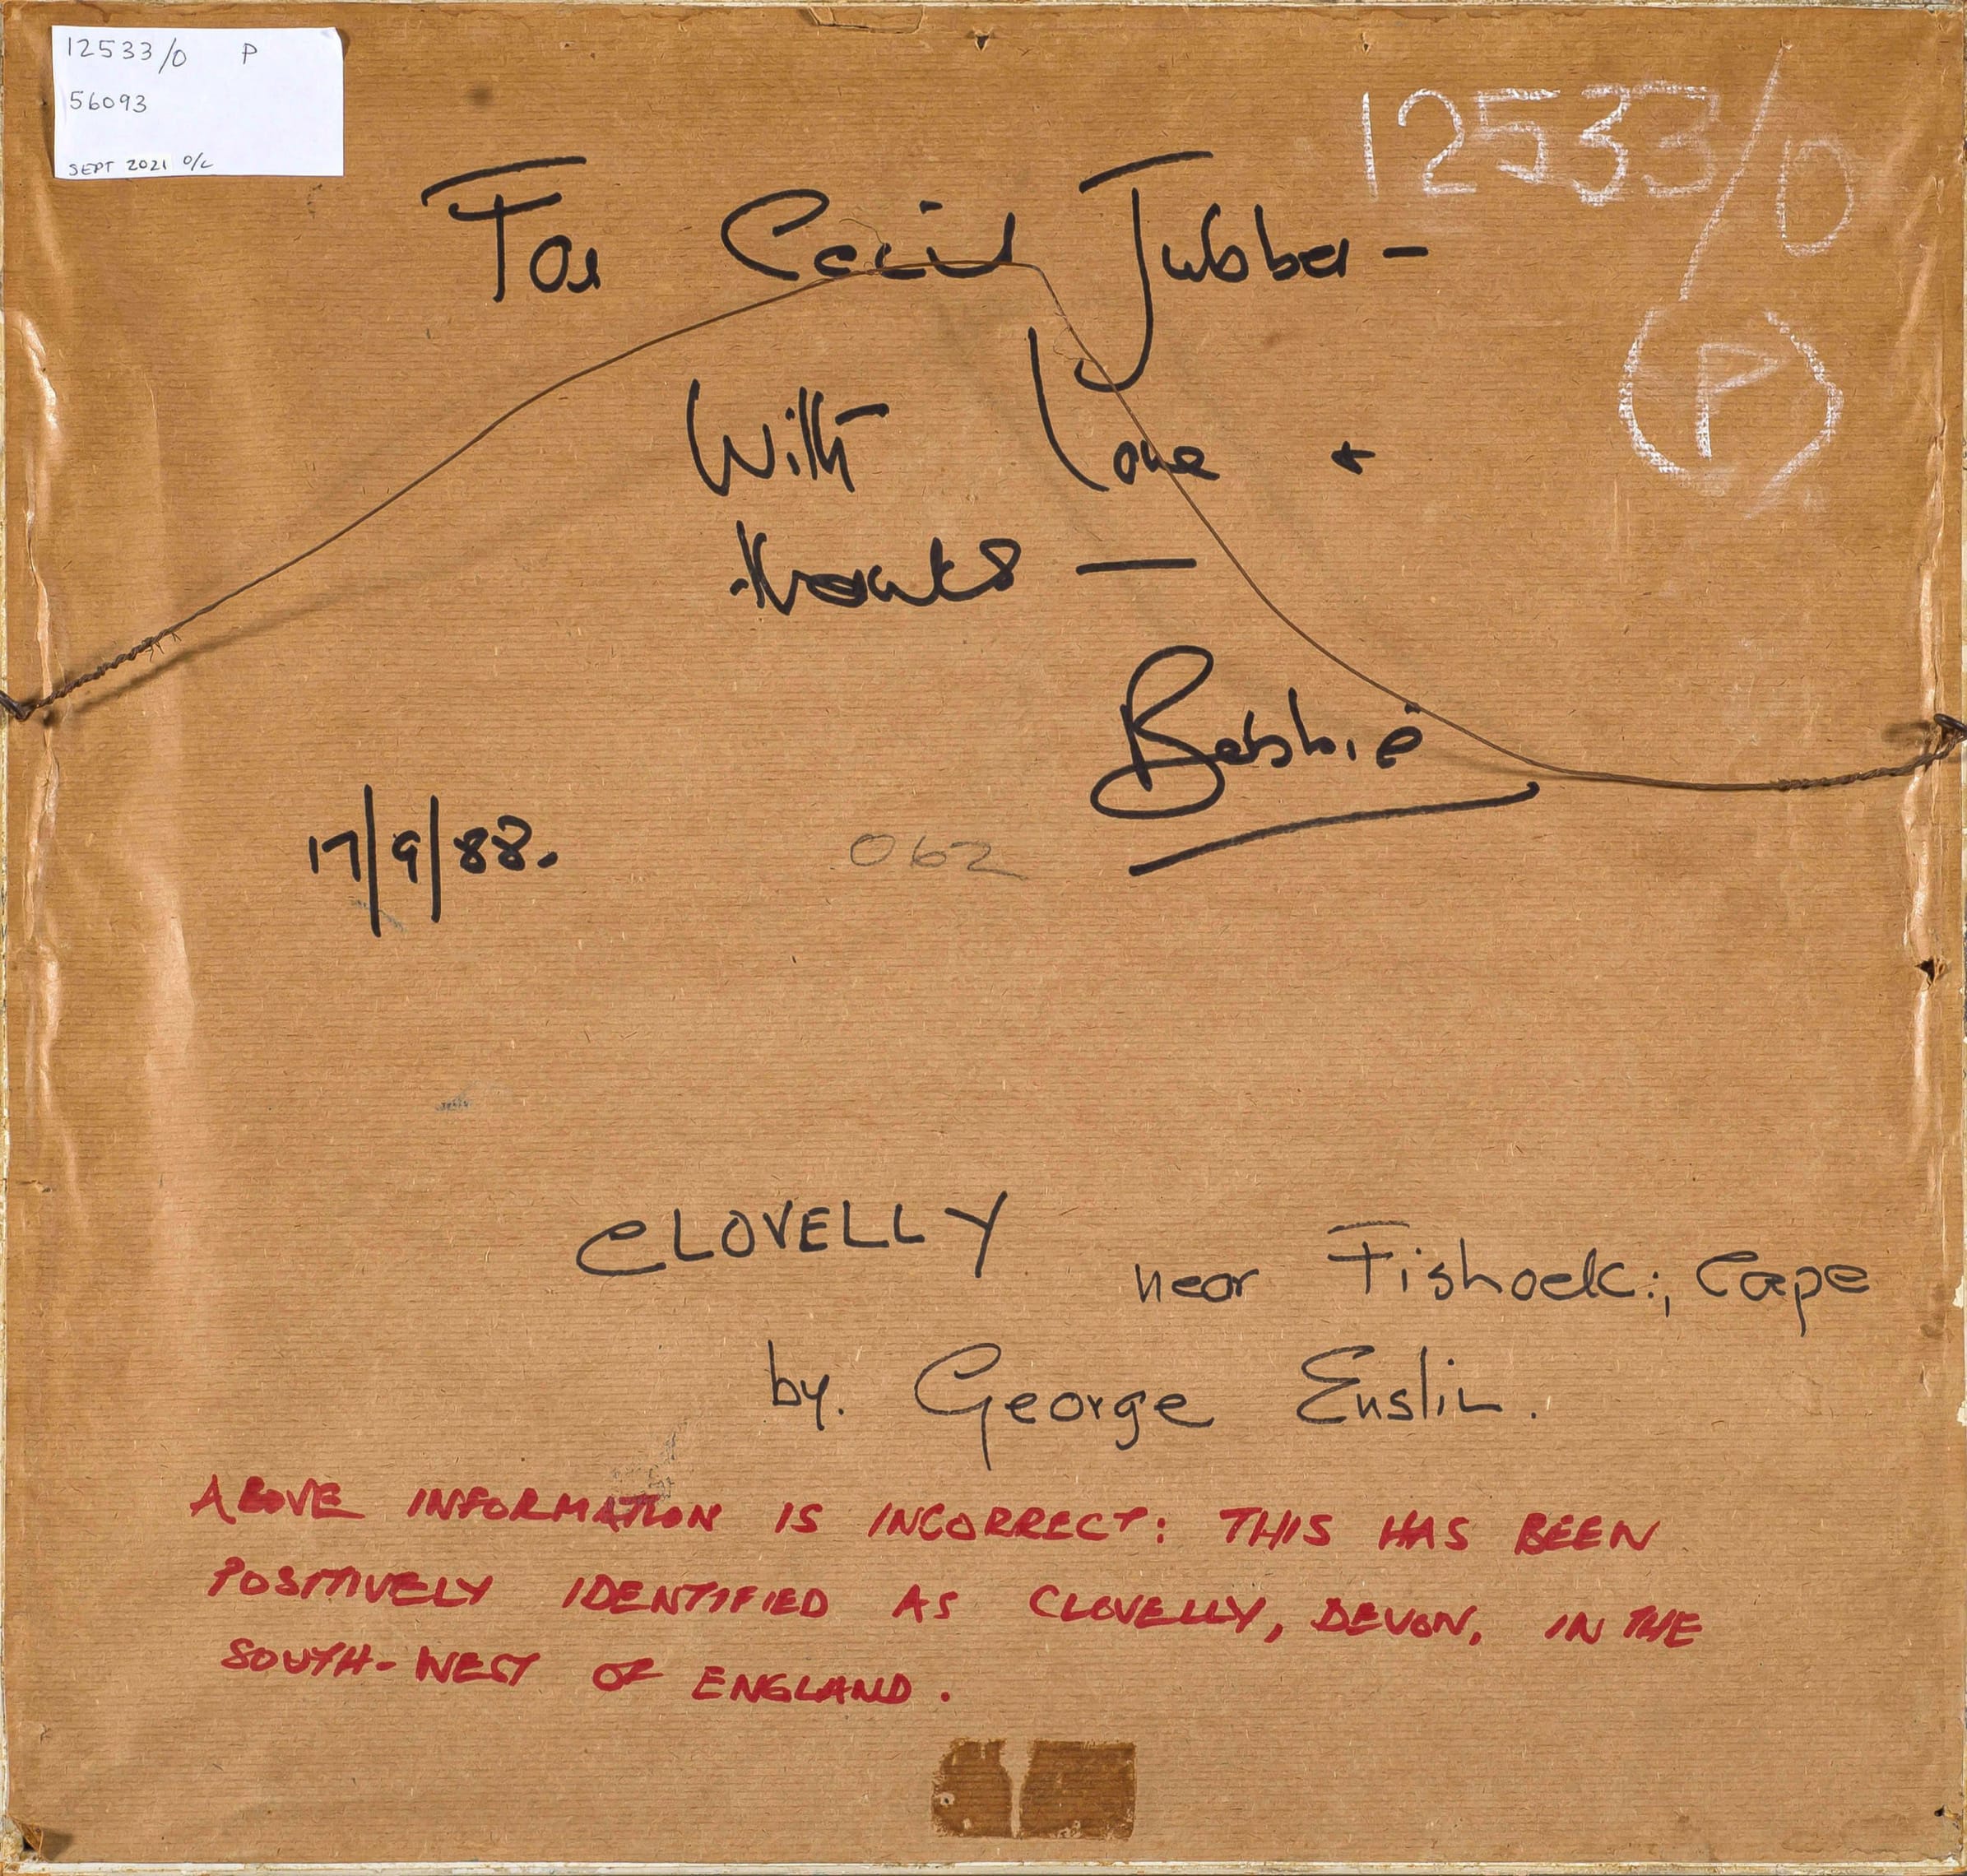 12533/0 P
56093
SEPT 2021 O/L
12533/0
P
For Cecil Jubber -
With Love +
thanks —
Bobbie
17/9/88.
062
CLOVELLY near Fishoek:, Cape
by. George Enslin.
ABOVE INFORMATION IS INCORRECT: THIS HAS BEEN
POSITIVELY IDENTIFIED AS CLOVELLY, DEVON, IN THE
SOUTH-WEST OF ENGLAND.